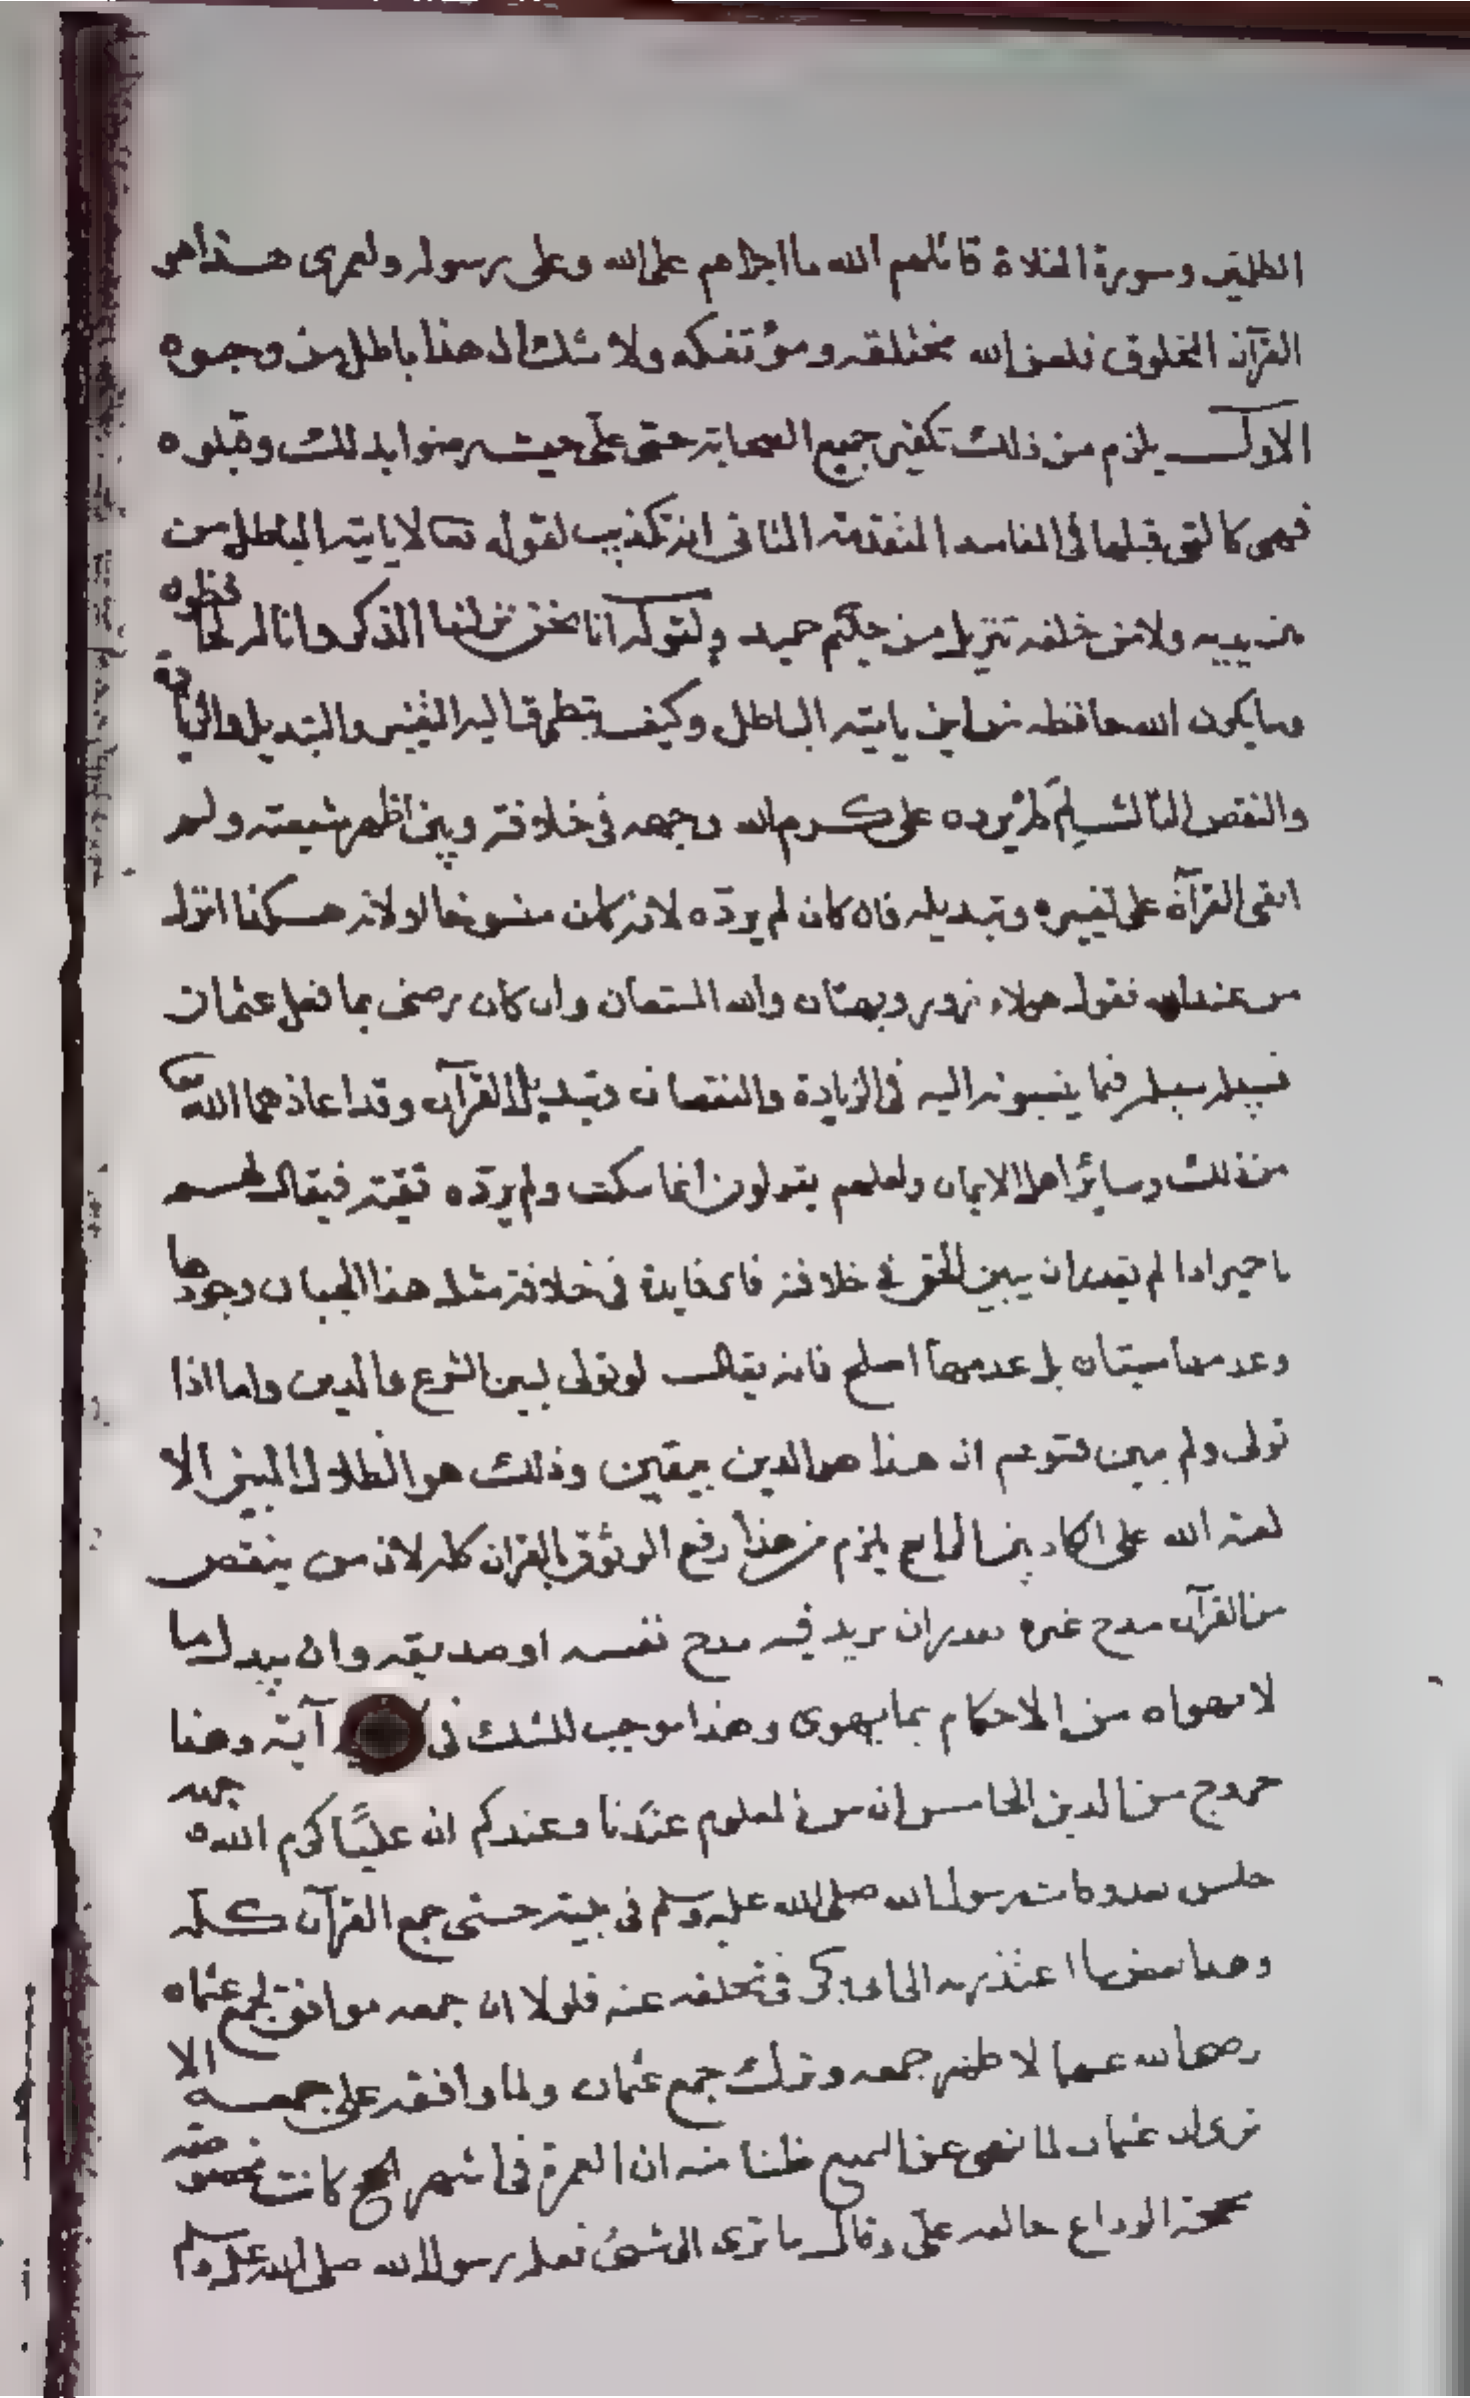 الطليق وسورة الخلاة قاتلهم الله ما اجراهم على الله وعلى رسوله ولعمرى هذا هو
القرآن المخلوق فلعن الله مختلقه ومؤتفكه ولا شك ان هذا باطل من وجوه
الاول يلزم من ذلك تكفير جميع الصحابة حتى على حيث رضوا بذلك وقبلوه
فهى كالتى قبلها فى المفاسد المتقدمة الثانى انه تكذيب لقوله تعا لا ياتيه الباطل من
بين يديه ولا من خلفه تنزيل من حكيم حميد ولقوله انا نحن نزلنا الذكر وانا له لحافظون
وما يكون الله حافظه من اين ياتيه الباطل وكيف يتطرق اليه التغيير والتبديل والزيادة
والنقص الثالث لم لم يرده على كرم الله وجهه فى خلافته وبين اظهر شيعته ولم
ابقى القرآن على تغييره وتبديله فان كان لم يرده لانه كان منسوخا او لانه هكذا انزل
من عند الله فقول هولاء زور وبهتان والله المستعان وان كان رضى بما فعل عثمان
فسبيله سبيله فيما ينسبونه اليه فى الزيادة والنقصان وتبديل القرآن وقد اعاذهما الله تعا
من ذلك وسائر اهل الايمان ولعلهم يقولون انما سكت ولم يرده تقية فيقال لهم
يا حمير اذا لم يقدر ان يبين الحق فى خلافته فاى فايدة فى خلافة مثل هذا الجبان وجودها
وعدمها سيتان بل عدمها اصلح فانه يقال لو تولى لبين الشرع والدين واما اذا
تولى ولم يبين فتوهم ان هذا هو الدين بيقين وذلك هو الظلال المبين الا
لعنة الله على الكاذبين الرابع يلزم من هذا رفع الوثوق بالقران كله لان من ينقص
من القرآن مدح غيره يقدر ان يريد فيه مدح نفسه او صديقه وان يبدل ما
لا يهواه من الاحكام بما يهوى وهذا موجب للشك فى آية وهذا
خروج من الدين الخامس ان من المعلوم عندنا وعندكم ان عليًّا كرم الله وجهه
جلس بعد وفات رسول الله صلى الله عليه وسلم فى بيته حتى جمع القرآن كله
وهذا بعض ما اعتذر به الى ابى بكر فى تخلفه عنه فلولا ان جمعه موافق لجمع عثمان
رضى الله عنهما لاظهر جمعه وترك جمع عثمان ولما وافقه على جمعه الا
ترى ان عثمان لما نهى عن التمتع ظنا منه ان العمرة فى اشهر الحج كانت مخصوصة
بحجة الوداع خالفه على وقال ما ترى الى شئ فعله رسول الله صلى الله عليه وسلم